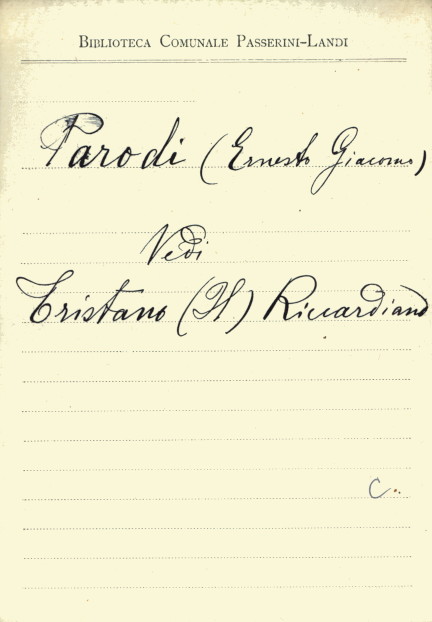 BIBLIOTECA COMUNALE PASSERINI-LANDI
Parodi (Ernesto Giacomo)
Vedi
Tristano (Il) Riccardiano
C..